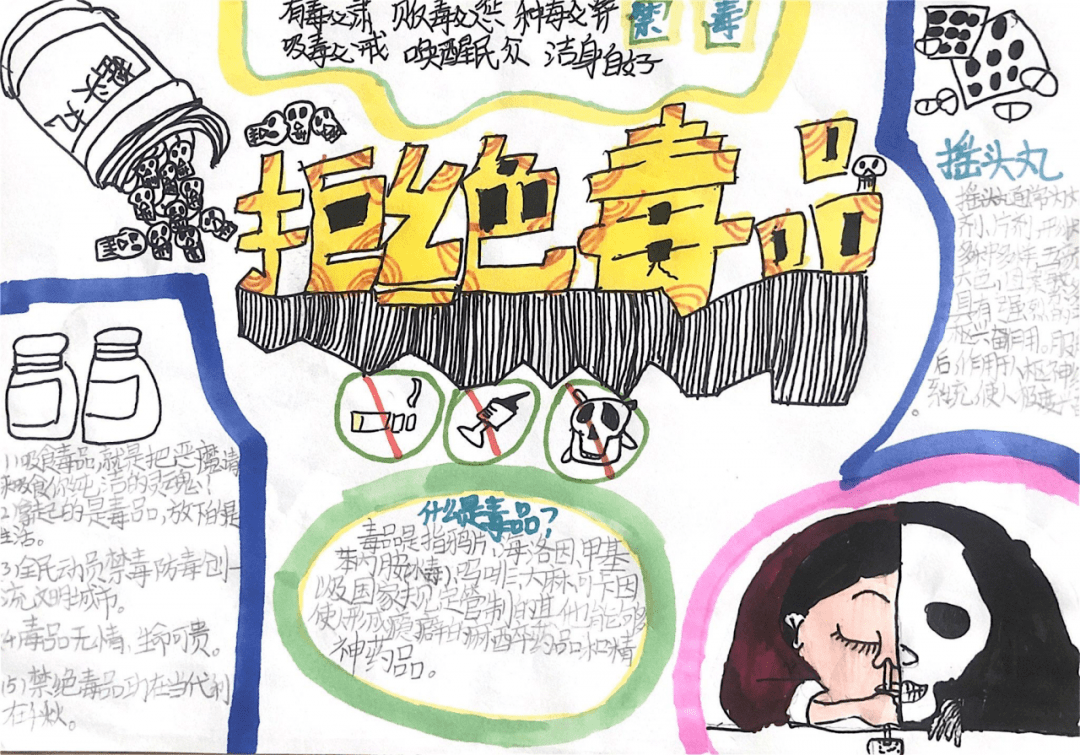 有毒必肃 贩毒必惩 种毒必
吸毒必戒 唤醒民众 洁身自好
禁 毒
摇头丸
拒绝毒品
摇头丸
摇头丸通常为
剂小片剂,形状
多种多样,五
具有强烈的
枢兴奋作用。服
后作用人枢神
系统,使人极度
1)吸食毒品,就是把恶魔请
和吸食你纯洁的灵魂!
2)拿起的是毒品,放下的是
生活。
3)全民动员禁毒防毒创一
流文明城市。
4.毒品无情,生命可贵。
(5)禁绝毒品功在当代利
在千秋。
什么是毒品?
毒品是指鸦片,海洛因,甲基
苯丙胺(冰毒),吗啡,大麻,可卡因
以及国家规定管制的其他能够
使形成瘾癖的麻醉药品和精
神药品。